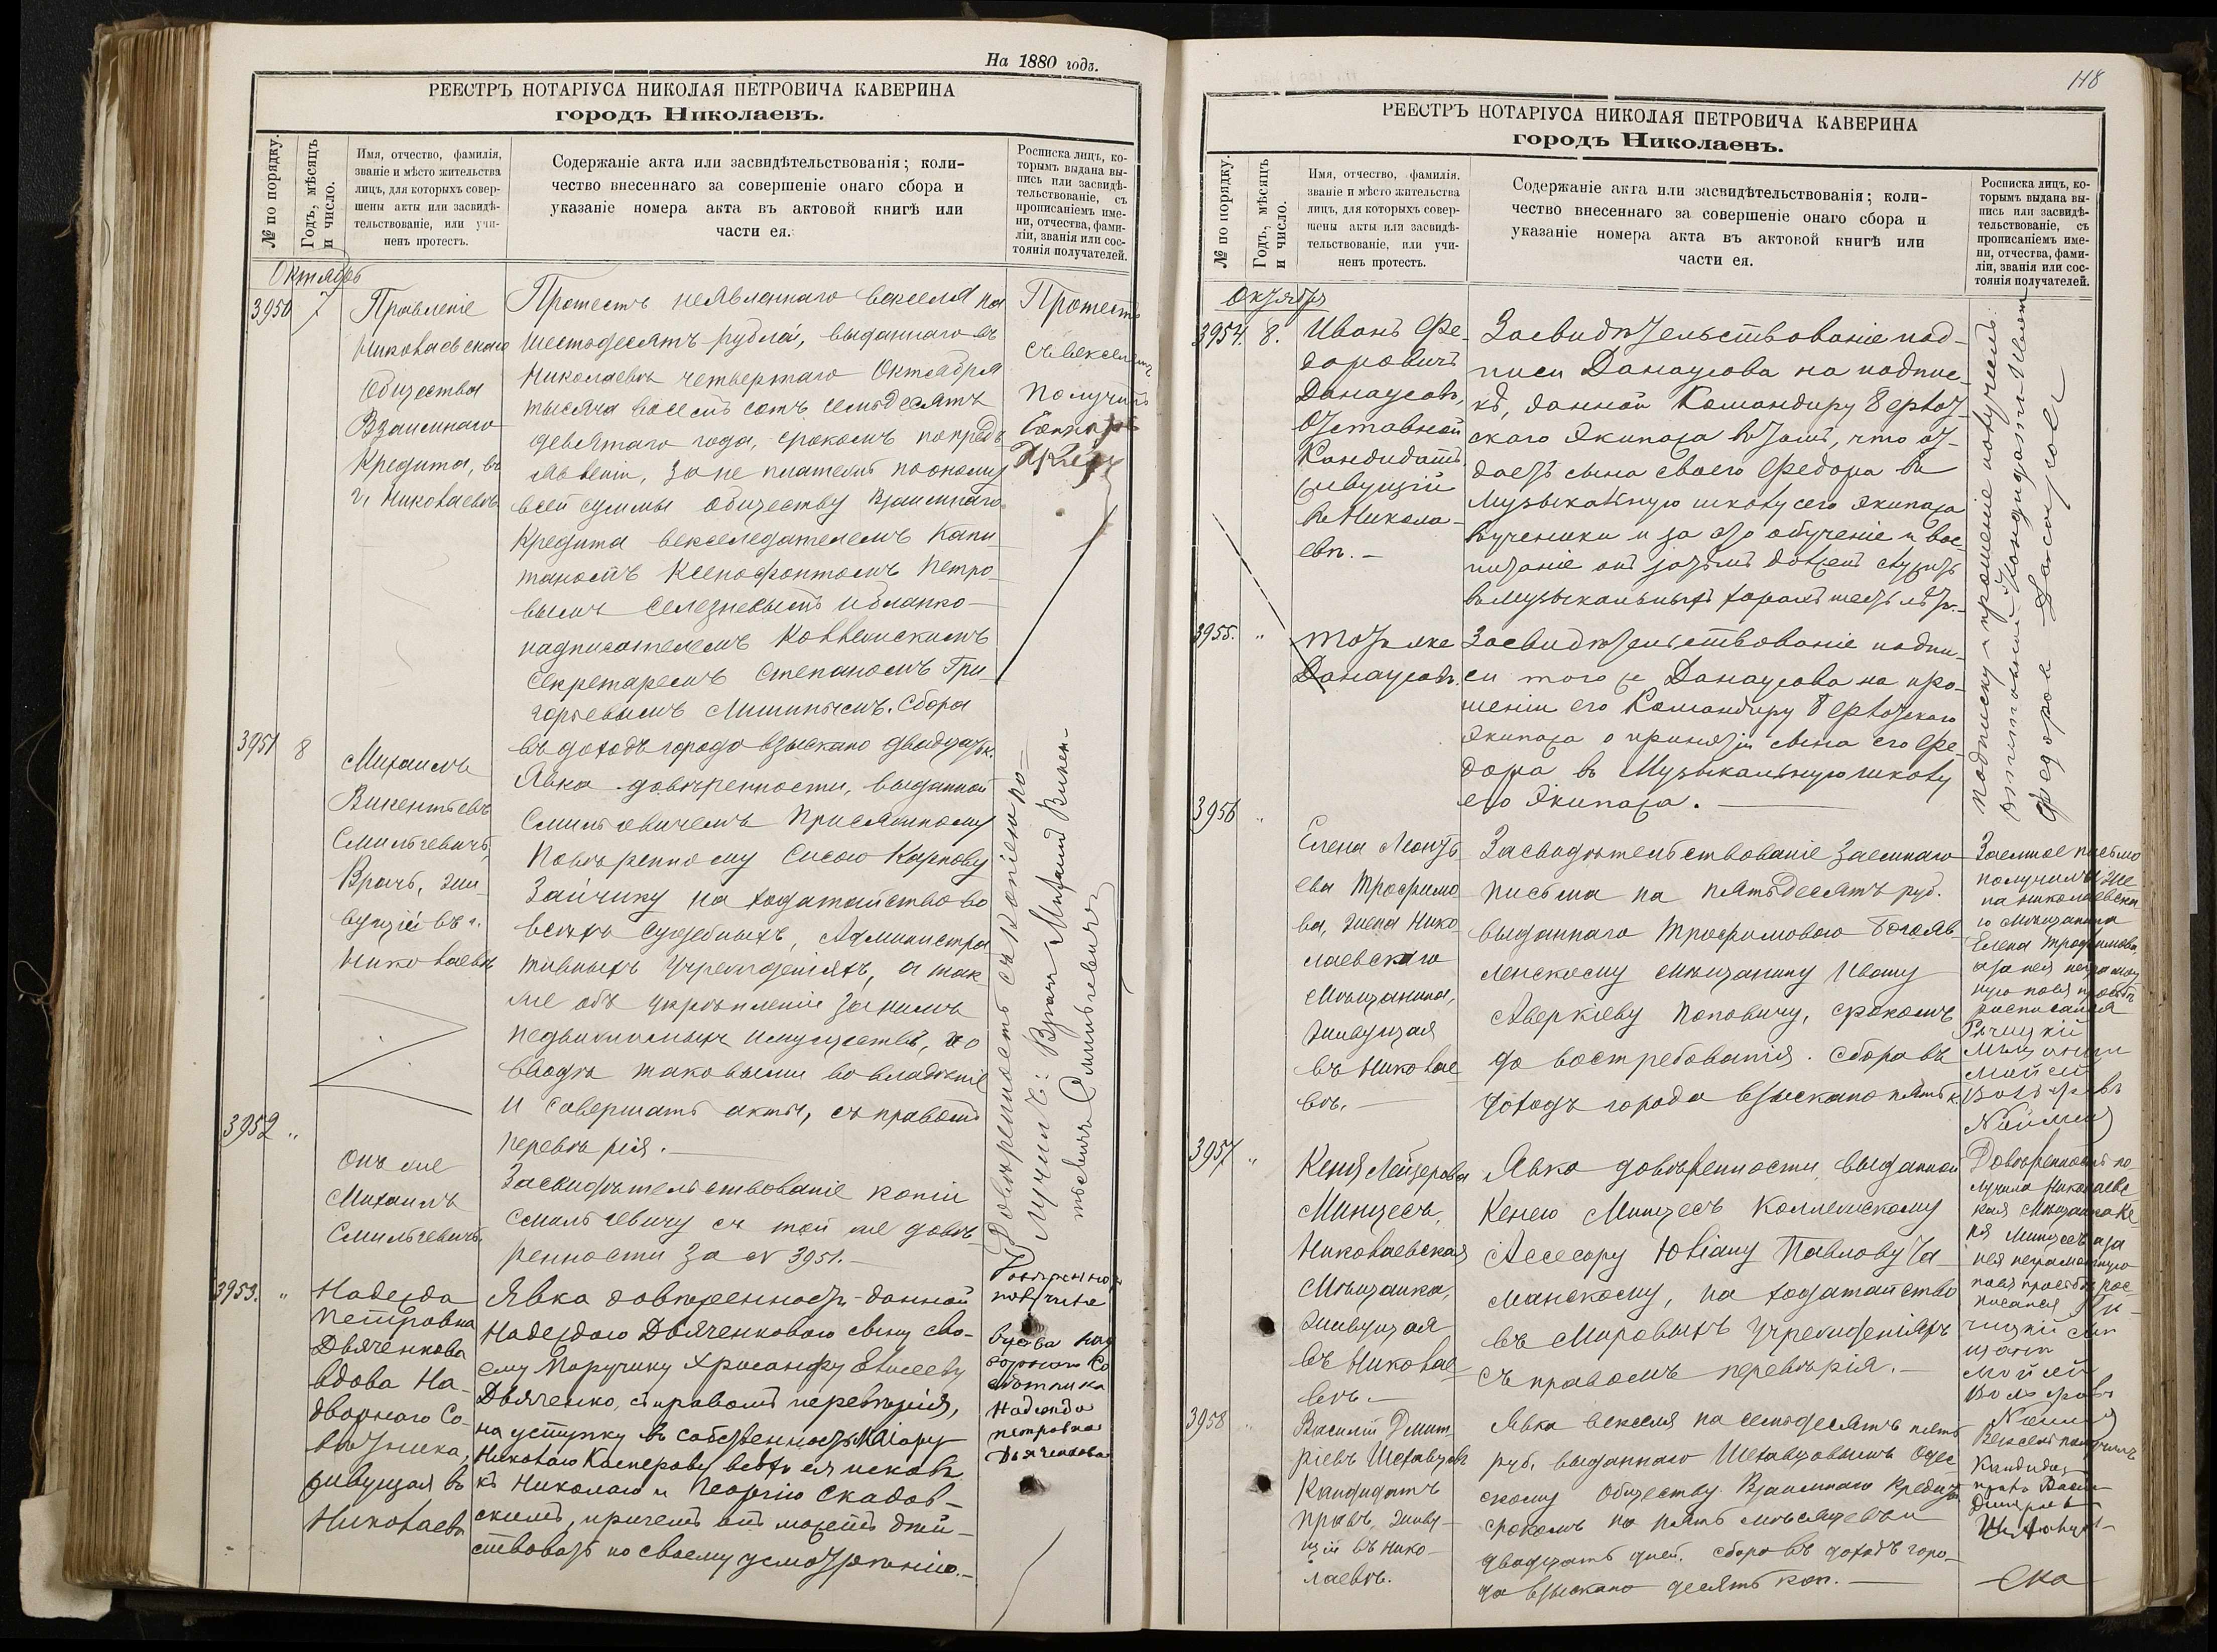 На 1880 годъ.
РЕЕСТРЪ НОТАРІУСА НИКОЛАЯ ПЕТРОВИЧА КАВЕРИНА
городъ Николаевъ.
№ по порядку.
Годъ, мѣсяцъ
и число.
Имя, отчество, фамилія,
званіе и мѣсто жительства
лицъ, для которыхъ совер-
шены акты или засвидѣ-
тельствованіе, или учи-
ненъ протестъ.
Содержаніе акта или засвидѣтельствованія; коли-
чество внесеннаго за совершеніе онаго сбора и
указаніе номера акта въ актовой книгѣ или
части ея.
Росписка лицъ, ко-
торымъ выдана вы-
пись или засвидѣ-
тельствованіе, съ
прописаніемъ име-
ни, отчества, фами-
ліи, званія или сос-
тоянія получателей.
Октябрь
3950
7
Правленіе
Николаевскаго
Общества
Взаимнаго
Кредита, въ
г. Николаевѣ
Протестъ неявленнаго векселя на
шестьдесятъ рублей, выданнаго въ
Николаевѣ четвертаго Октября
тысяча восемь сотъ семьдесятъ
девятаго года, срокомъ по предъ
явленіи, за не платежъ по оному
всей суммы обществу Взаимнаго
Кредита векселедателемъ Капи
таномъ Ксенофонтомъ Петро
вымъ Селезневымъ и бланко-
надписателемъ Коллежскимъ
Секретаремъ Степаномъ Гри
горьевымъ Сбора
въ доходъ города взыскано двадцать к.
Протестъ
съ векселемъ
получилъ
3951
8
Михаилъ
Викентьевъ
Смильгевичъ,
Врачъ, жи-
вущій въ г.
Николаевѣ
Явка довѣренности, выданной
Смильгевичемъ Присяжному
Повѣренному Сисою Карпову
Зайчику на ходатайство во
всѣхъ судебныхъ, Администра
тивныхъ Учрежденіяхъ, а так
же объ укрѣпленіи за нимъ
недвижимыхъ имуществъ, и о
вводѣ таковыми во владѣніе
и совершать акты, съ правомъ
перевѣрія.
Довѣренность съ Копіею по-
лучилъ: Врачъ Михаилъ Викен-
тьевичъ Смильгевичъ
3952
"
Онъ же
Михаилъ
Смильгевичъ.
Засвидѣтельствованіе копіи
Смильгевичу съ той же довѣ-
ренности за № 3951.
3953.
"
Надежда
Петровна
Дьяченкова
вдова На-
дворнаго Со-
вѣтника,
живущая въ
Николаевѣ
Явка довѣренности данной
Надеждою Дьяченковою сыну сво-
ему Поручику Хрисанфу Елисееву
Дьяченко, съ правомъ перевѣрія,
на уступку въ собственность Маіору
Николаю Касперову всѣхъ ея исковъ
къ Николаю и Георгію Скадов-
скимъ, причемъ онъ можетъ дѣй-
ствовать по своему усмотрѣнію.
Довѣренность
получила
вдова Над
ворнаго Со
вѣтника
Надежда
Петровна
Дьяченкова
118
РЕЕСТРЪ НОТАРІУСА НИКОЛАЯ ПЕТРОВИЧА КАВЕРИНА
городъ Николаевъ.
№ по порядку.
Годъ, мѣсяцъ
и число.
Имя, отчество, фамилія,
званіе и мѣсто жительства
лицъ, для которыхъ совер-
шены акты или засвидѣ-
тельствованіе, или учи-
ненъ протестъ.
Содержаніе акта или засвидѣтельствованія; коли-
чество внесеннаго за совершеніе онаго сбора и
указаніе номера акта въ актовой книгѣ или
части ея.
Росписка лицъ, ко-
торымъ выдана вы-
пись или засвидѣ-
тельствованіе, съ
прописаніемъ име-
ни, отчества, фами-
ліи, званія или сос-
тоянія получателей.
Октября
3954.
8.
Иванъ Фе-
доровичъ
Данаусовъ,
Отставной
Кандидатъ
живущій
въ Никола-
евѣ.
Засвидѣтельствованіе под-
писи Данаусова на подпис-
кѣ, данной Командиру 8 флот-
скаго Экипажа въ томъ, что от-
даетъ сына своего Федора въ
Музыкальную школу сего экипажа
въ ученики и за его обученіе и вос-
питаніе онъ затѣмъ долженъ служить
въ Музыкальныхъ хорахъ шесть лѣтъ.
3955.
"
Тотъ же
Данаусовъ.
Засвидѣтельствованіе подпи-
си того же Данаусова на про-
шеніи его Командиру 8 флотскаго
экипажа о принятіи сына его Фе-
дора въ Музыкальную школу
его Экипажа.
подписку и прошеніе получилъ:
отставной Кандидатъ Иванъ
Федоровъ Данаусовъ
3956
"
Елена Леонть
ева Трофимо
ва, жена Нико
лаевскаго
мѣщанина,
живущая
въ Николае
вѣ.
Засвидѣтельствованіе заемнаго
письма на пятьдесятъ руб.
выданнаго Трофимовою Богояв-
ленскому мѣщанину Ивану
Аверкіеву Поповичу, срокомъ
до востребованія. Сбора въ
доходъ города взыскано пять к.
Заемное письмо
получила же
на николаевска
го мѣщанина
Елена Трофимова,
а за нея неграмот
ную по ея просьбѣ
росписался
мѣщанинъ
Мойсей
3957
"
Кеня Лейзерова
Минцесъ,
Николаевская
Мѣщанка,
живущая
въ Николае
вѣ.
Явка довѣренности, выданной
Кенею Минцесъ Коллежскому
Ассесору Юліану Павлову Ча-
манскому, на ходатайство
въ Мировыхъ Учрежденіяхъ
съ правомъ перевѣрія.
Довѣренность по-
лучила Николаевс
кая Мѣщанка Ке
ня Минцесъ а за
нея неграмотную
по ея просьбѣ рос
писался
Мойсей
3958
"
Василій Дмит
ріевъ
Кандидатъ
правъ, живу-
щій въ Нико-
лаевѣ.
Явка векселя на семьдесятъ пять
руб. выданнаго Одес
скому Обществу Взаимнаго Кредита
срокомъ на пять мѣсяцевъ и
двадцать дней. Сбора въ доходъ горо-
да взыскано десять коп.
Вексель получилъ
Кандидатъ
правъ Васил